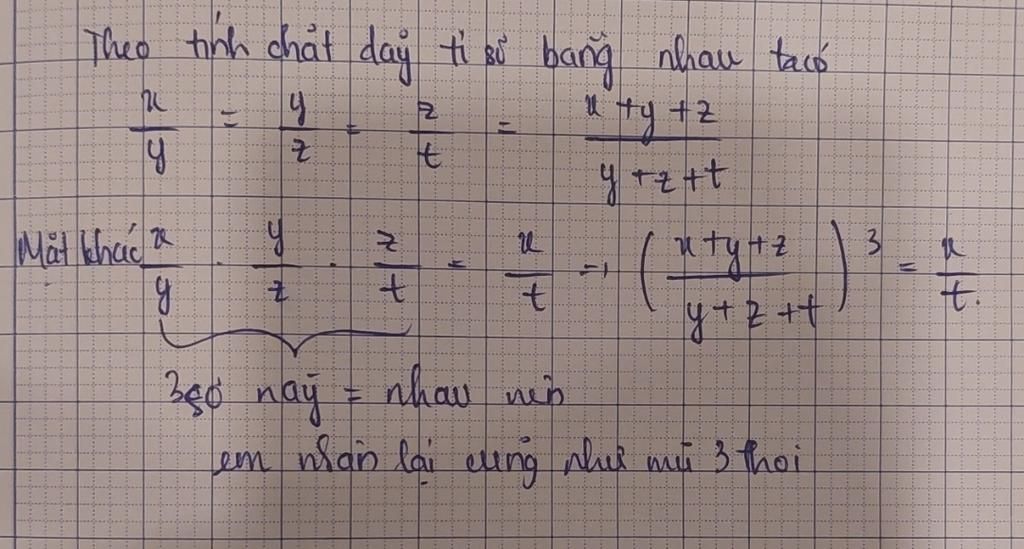 Theo tính chất dãy tỉ số bằng nhau ta có
x/y = y/z = z/t = (x+y+z)/(y+z+t)
Mặt khác x/y . y/z . z/t = x/t → ((x+y+z)/(y+z+t))^3 = x/t.
3 số này = nhau nên
em nhân lại cũng như mũ 3 thôi